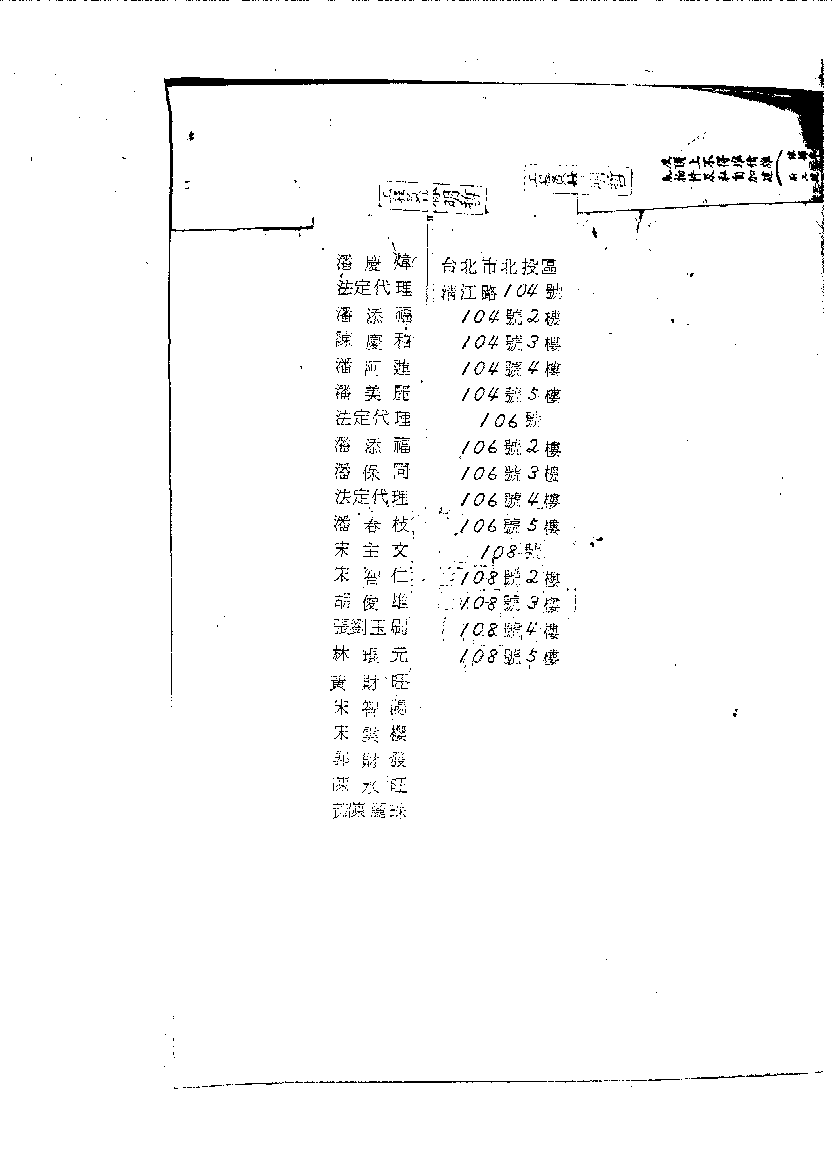 潘慶煒 台北市北投區
法定代理 清江路104號
潘添福 104號2樓
陳慶和 104號3樓
潘阿蓮 104號4樓
潘美麗 104號5樓
法定代理 106號
潘添福 106號2樓
潘保同 106號3樓
法定代理 106號4樓
潘春枝 106號5樓
宋主文 108號
宋智仁 108號2樓
胡俊雄 108號3樓
張劉玉 108號4樓
林 元 108號5樓
黃財旺
宋智
宋 櫻
郭財發
陳水旺
陳麗珠